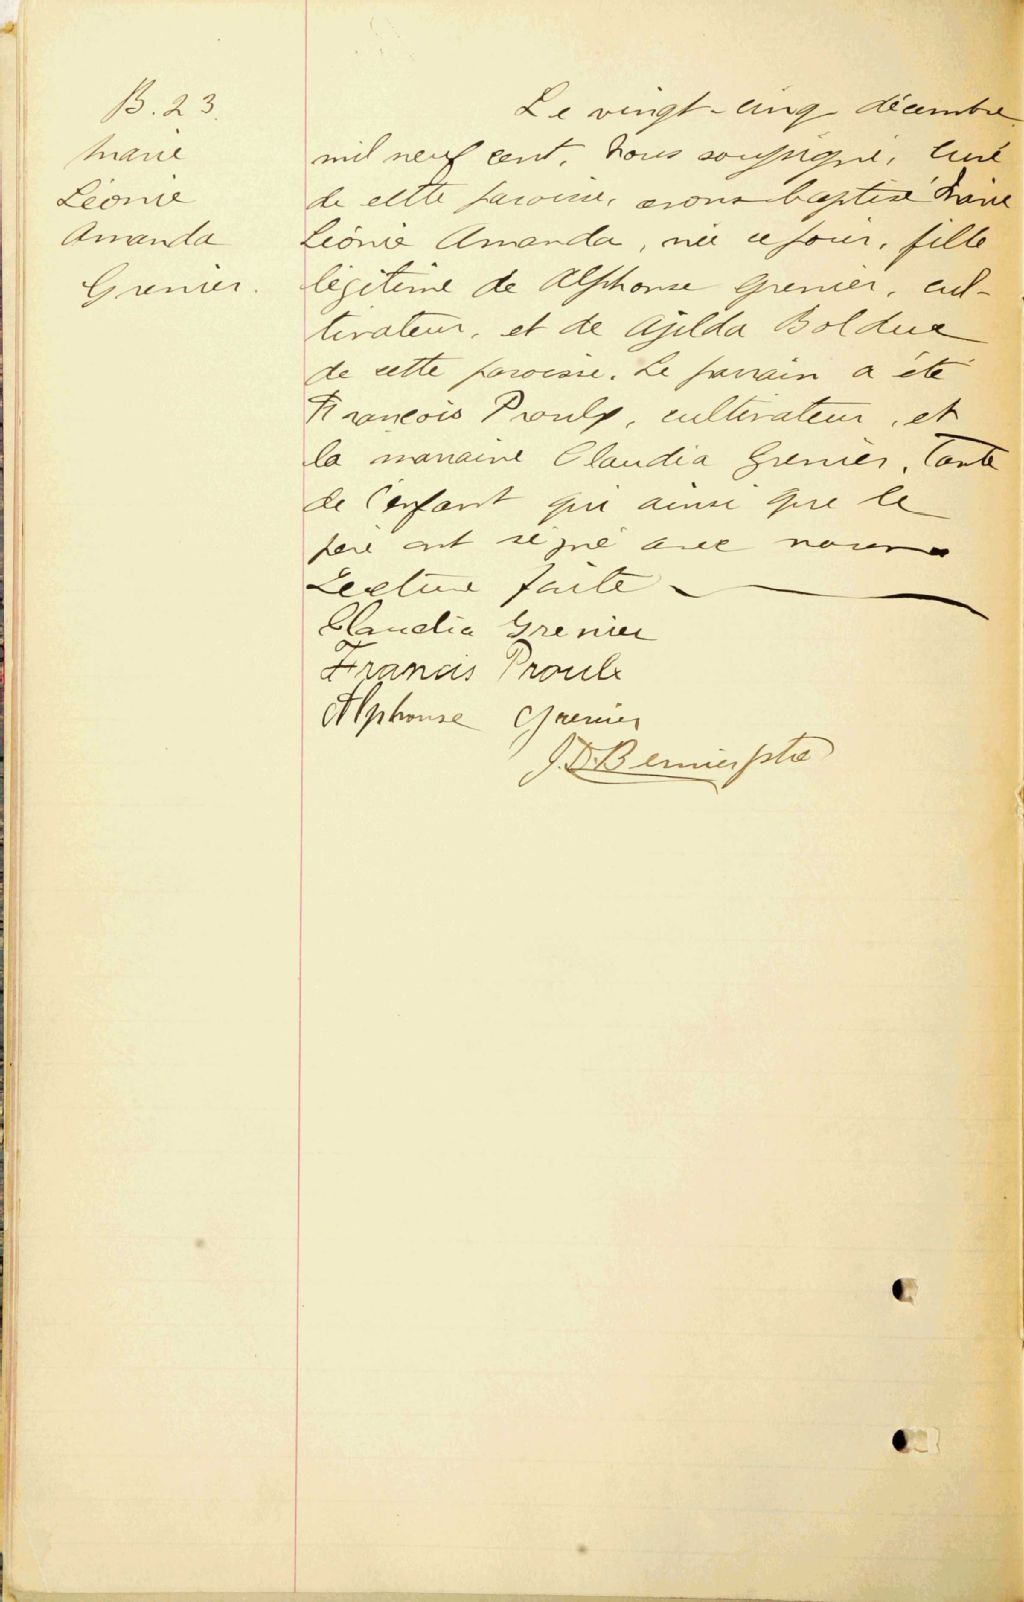 B. 23.
Marie
Léonie
Amanda
Grenier.
Le vingt-cinq décembre
mil neuf cent, Nous soussigné, curé
de cette paroisse, avons baptisé Marie
Léonie Amanda, née ce jour, fille
légitime de Alphonse Grenier, cul-
tivateur, et de Azilda Bolduc
de cette paroisse. Le parrain a été
François Proulx, cultivateur, et
la marraine Claudia Grenier, Tante
de l'enfant qui ainsi que le
père ont signé avec nous
Lecture faite
Claudia Grenier
Francis Proulx
Alphonse Grenier
J.D. Bernier ptre